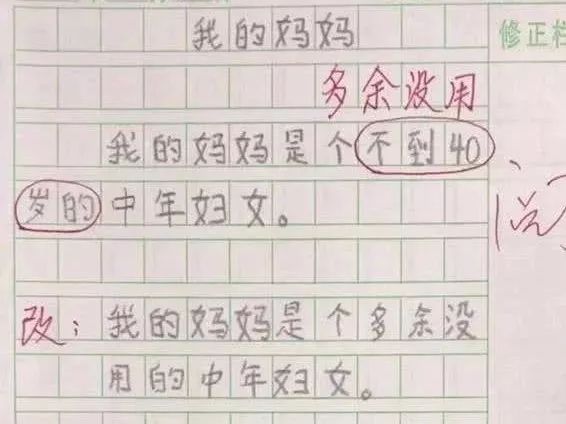 我的妈妈
修正栏
多余没用
我的妈妈是个不到40
岁的中年妇女。
改：我的妈妈是个多余没
用的中年妇女。